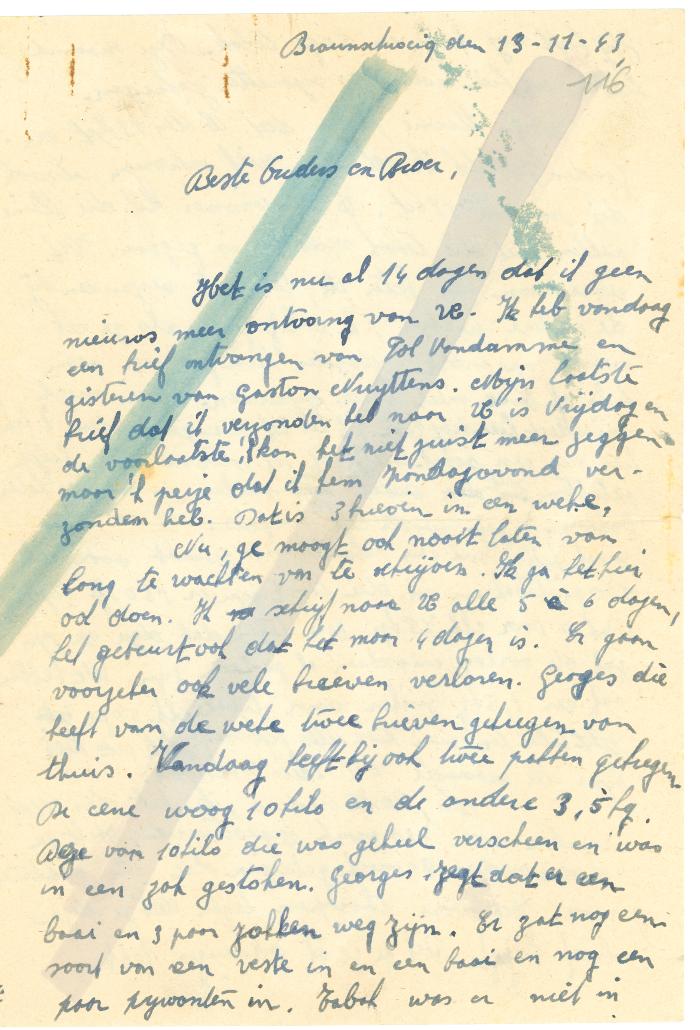 Braunschweig den 13-11-43
116
Beste Ouders en Broer,
Het is nu al 14 dagen dat ik geen
nieuws meer ontvang van U. Ik heb vandaag
een brief ontvangen van Pol Vandamme en
gisteren van Gaston Nuyttens. Mijn laatste
brief dat ik verzonden heb naar U is Vrijdag en
de voorlaatste, 'k kan het niet juist meer zeggen
maar 'k peize dat ik hem Zondagavond ver-
zonden heb. Dat is 3 brieven in een weke,
Nu, ge moogt ook nooit laten van
long te wachten van te schrijven. Ik ga het hier
ook doen. Ik schrijf naar U alle 5 à 6 dagen,
het gebeurt ook dat het maar 4 dagen is. Er gaan
voorzeker ook vele brieven verloren. Georges die
heeft van de weke twee brieven gekregen van
thuis. Vandaag heeft hij ook twee pakken gekregen
De eene woog 10 kilo en de andere 3,5 kg.
Deze van 10 kilo die was geheel verscheen en was
in een zak gestoken. Georges zegt dat er een
baai en 3 paar zokken weg zijn. Er zat nog een
soort van een veste in en een baai en nog een
paar pijwanten in. Tabak was er niet in